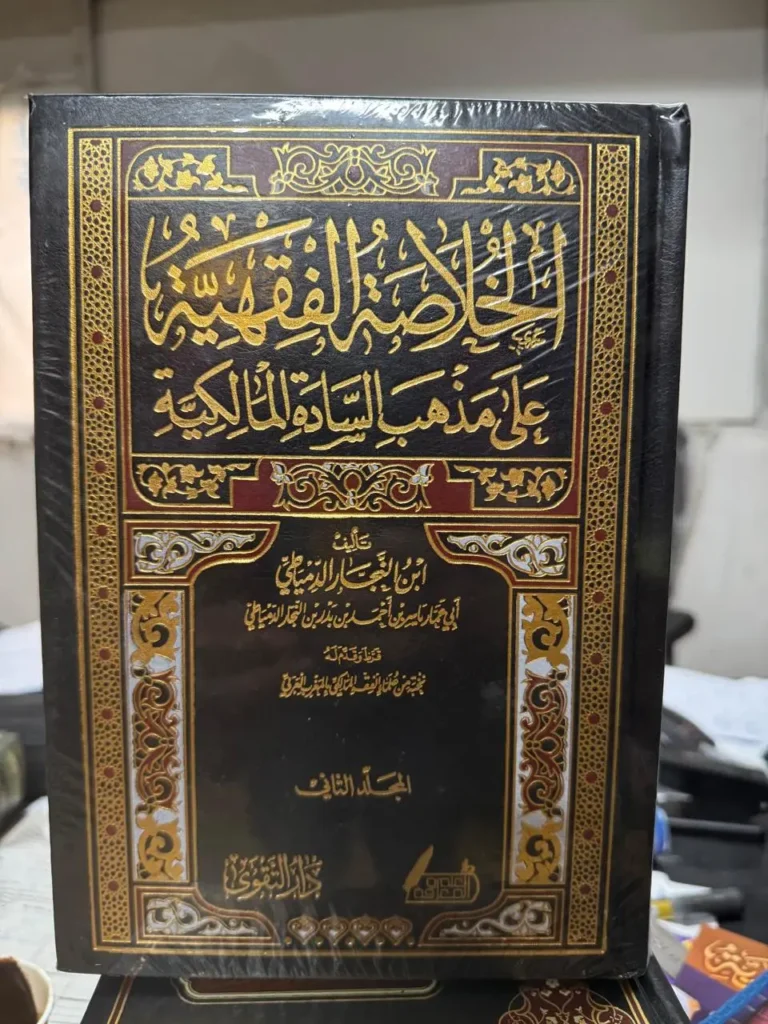 الْخُلَاصَةُ الْفِقْهِيَّةُ
عَلَى مَذْهَبِ السَّادَةِ الْمَالِكِيَّةِ
تَأْلِيفُ
ابْنُ النَّجَّارِ الدِّمْيَاطِيِّ
أَبِي عَمَّار يَاسِر بْنِ أَحْمَد بْنِ بَدْر بْنِ النَّجَّار الدِّمْيَاطِيّ
قَرَّظَ وَقَدَّمَ لَهُ
نُخْبَة مِنْ عُلَمَاءِ الْفِقْهِ الْمَالِكِيِّ بِالْمَغْرِبِ الْعَرَبِيِّ
الْمُجَلَّدُ الثَّانِي
دَارُ التَّقْوَى